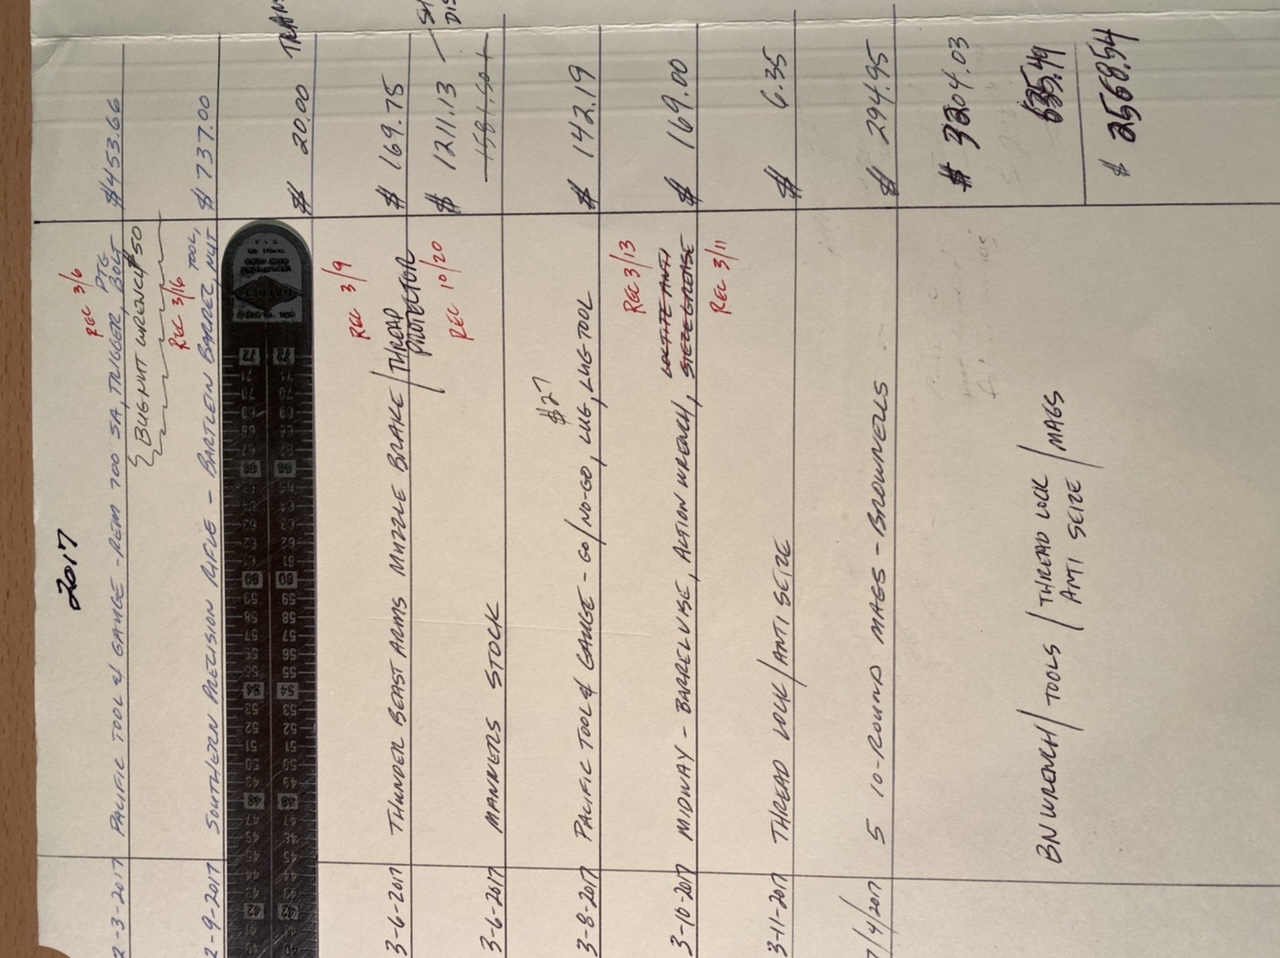 2017
REC 3/6
2-3-2017 PACIFIC TOOL & GAUGE - REM 700 SA, TRIGGER, PTG BOLT $453.66
{BUGNUT WRENCH $50
REC 3/16
2-9-2017 SOUTHERN PRECISION RIFLE - BARTLEIN BARREL, TOOL, NUT $737.00
$ 20.00
REC 3/9
3-6-2017 THUNDER BEAST ARMS MUZZLE BRAKE / THREAD PROTECTOR $ 169.75
REC 10/20
3-6-2017 MANNERS STOCK $ 1211.13
1581.50
$27
3-8-2017 PACIFIC TOOL & GAUGE - GO/NO-GO, LUG, LUG TOOL $ 142.19
REC 3/13
LOCTITE ANTI
3-10-2017 MIDWAY - BARREL VISE, ACTION WRENCH, SIEZE GREASE $ 169.00
REC 3/11
3-11-2017 THREAD LOCK/ANTI SEIZE $ 6.35
7/4/2017 5 10-ROUND MAGS - BROWNELLS $ 294.95
$ 3204.03
635.49
$ 2568.54
BN WRENCH / TOOLS / THREAD LOCK / MAGS
ANTI SEIZE
72 72
71 71
70 70
69 69
66 66
60 60
59 59
58 58
57 57
56 56
55 55
54 54
53 53
52 52
51 51
50 50
49 49
48 48
47 47
46 46
45 45
44 44
43 43
42 42
41 41
40 40